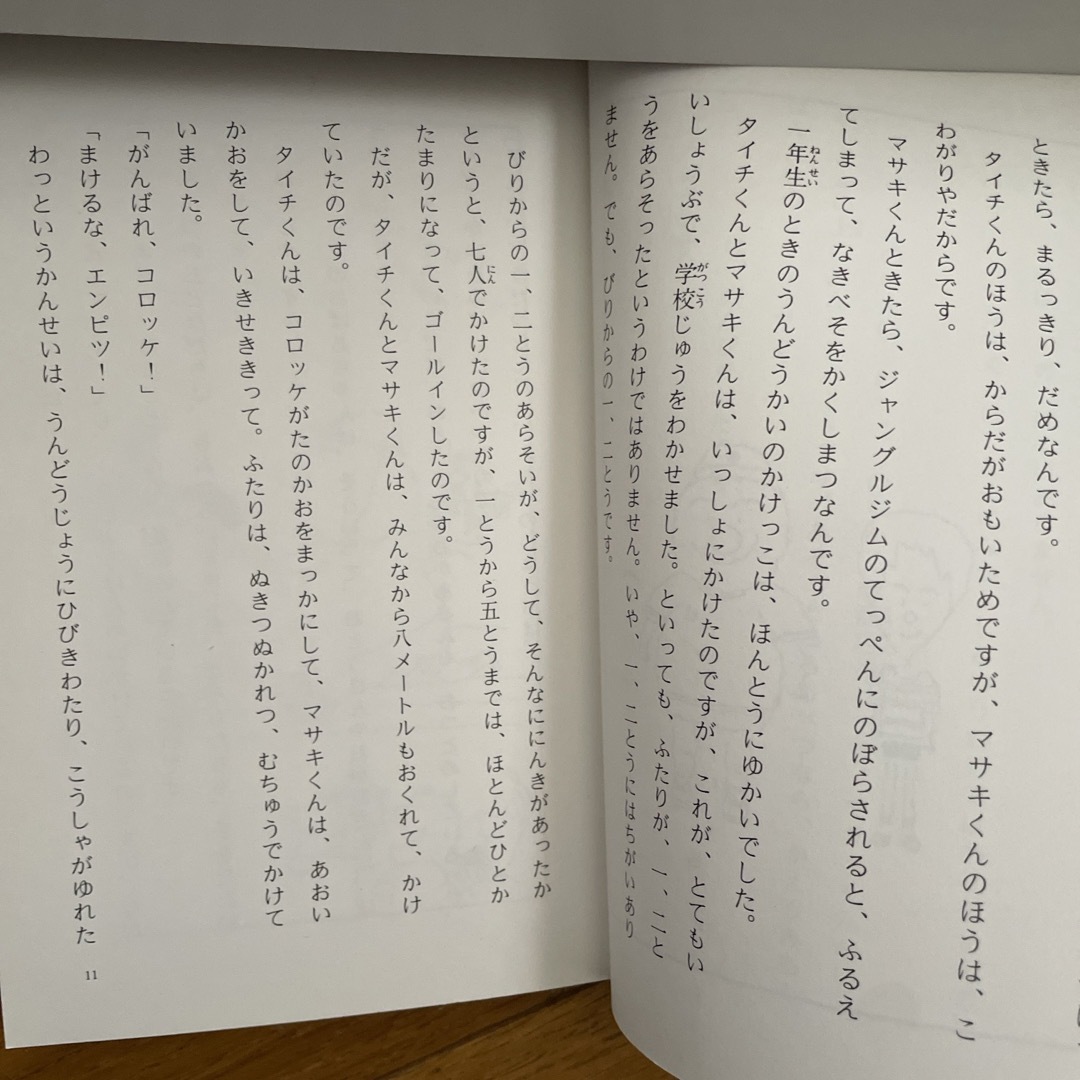 ときたら、まるっきり、だめなんです。
タイチくんのほうは、からだがおもいためですが、マサキくんのほうは、こ
わがりやだからです。
マサキくんときたら、ジャングルジムのてっぺんにのぼらされると、ふるえ
てしまって、なきべそをかくしまつなんです。
一年生のときのうんどうかいのかけっこは、ほんとうにゆかいでした。
タイチくんとマサキくんは、いっしょにかけたのですが、これが、とてもい
いしょうぶで、学校じゅうをわかせました。といっても、ふたりが、一、二と
うをあらそったというわけではありません。いや、一、二とうにはちがいあり
ません。でも、びりからの一、二とうです。
びりからの一、二とうのあらそいが、どうして、そんなににんきがあったか
というと、七人でかけたのですが、一とうから五とうまでは、ほとんどひとか
たまりになって、ゴールインしたのです。
だが、タイチくんとマサキくんは、みんなから八メートルもおくれて、かけ
ていたのです。
タイチくんは、コロッケがたのかおをまっかにして、マサキくんは、あおい
かおをして、いきせききって。ふたりは、ぬきつぬかれつ、むちゅうでかけて
いました。
「がんばれ、コロッケ！」
「まけるな、エンピツ！」
わっというかんせいは、うんどうじょうにひびきわたり、こうしゃがゆれた
11